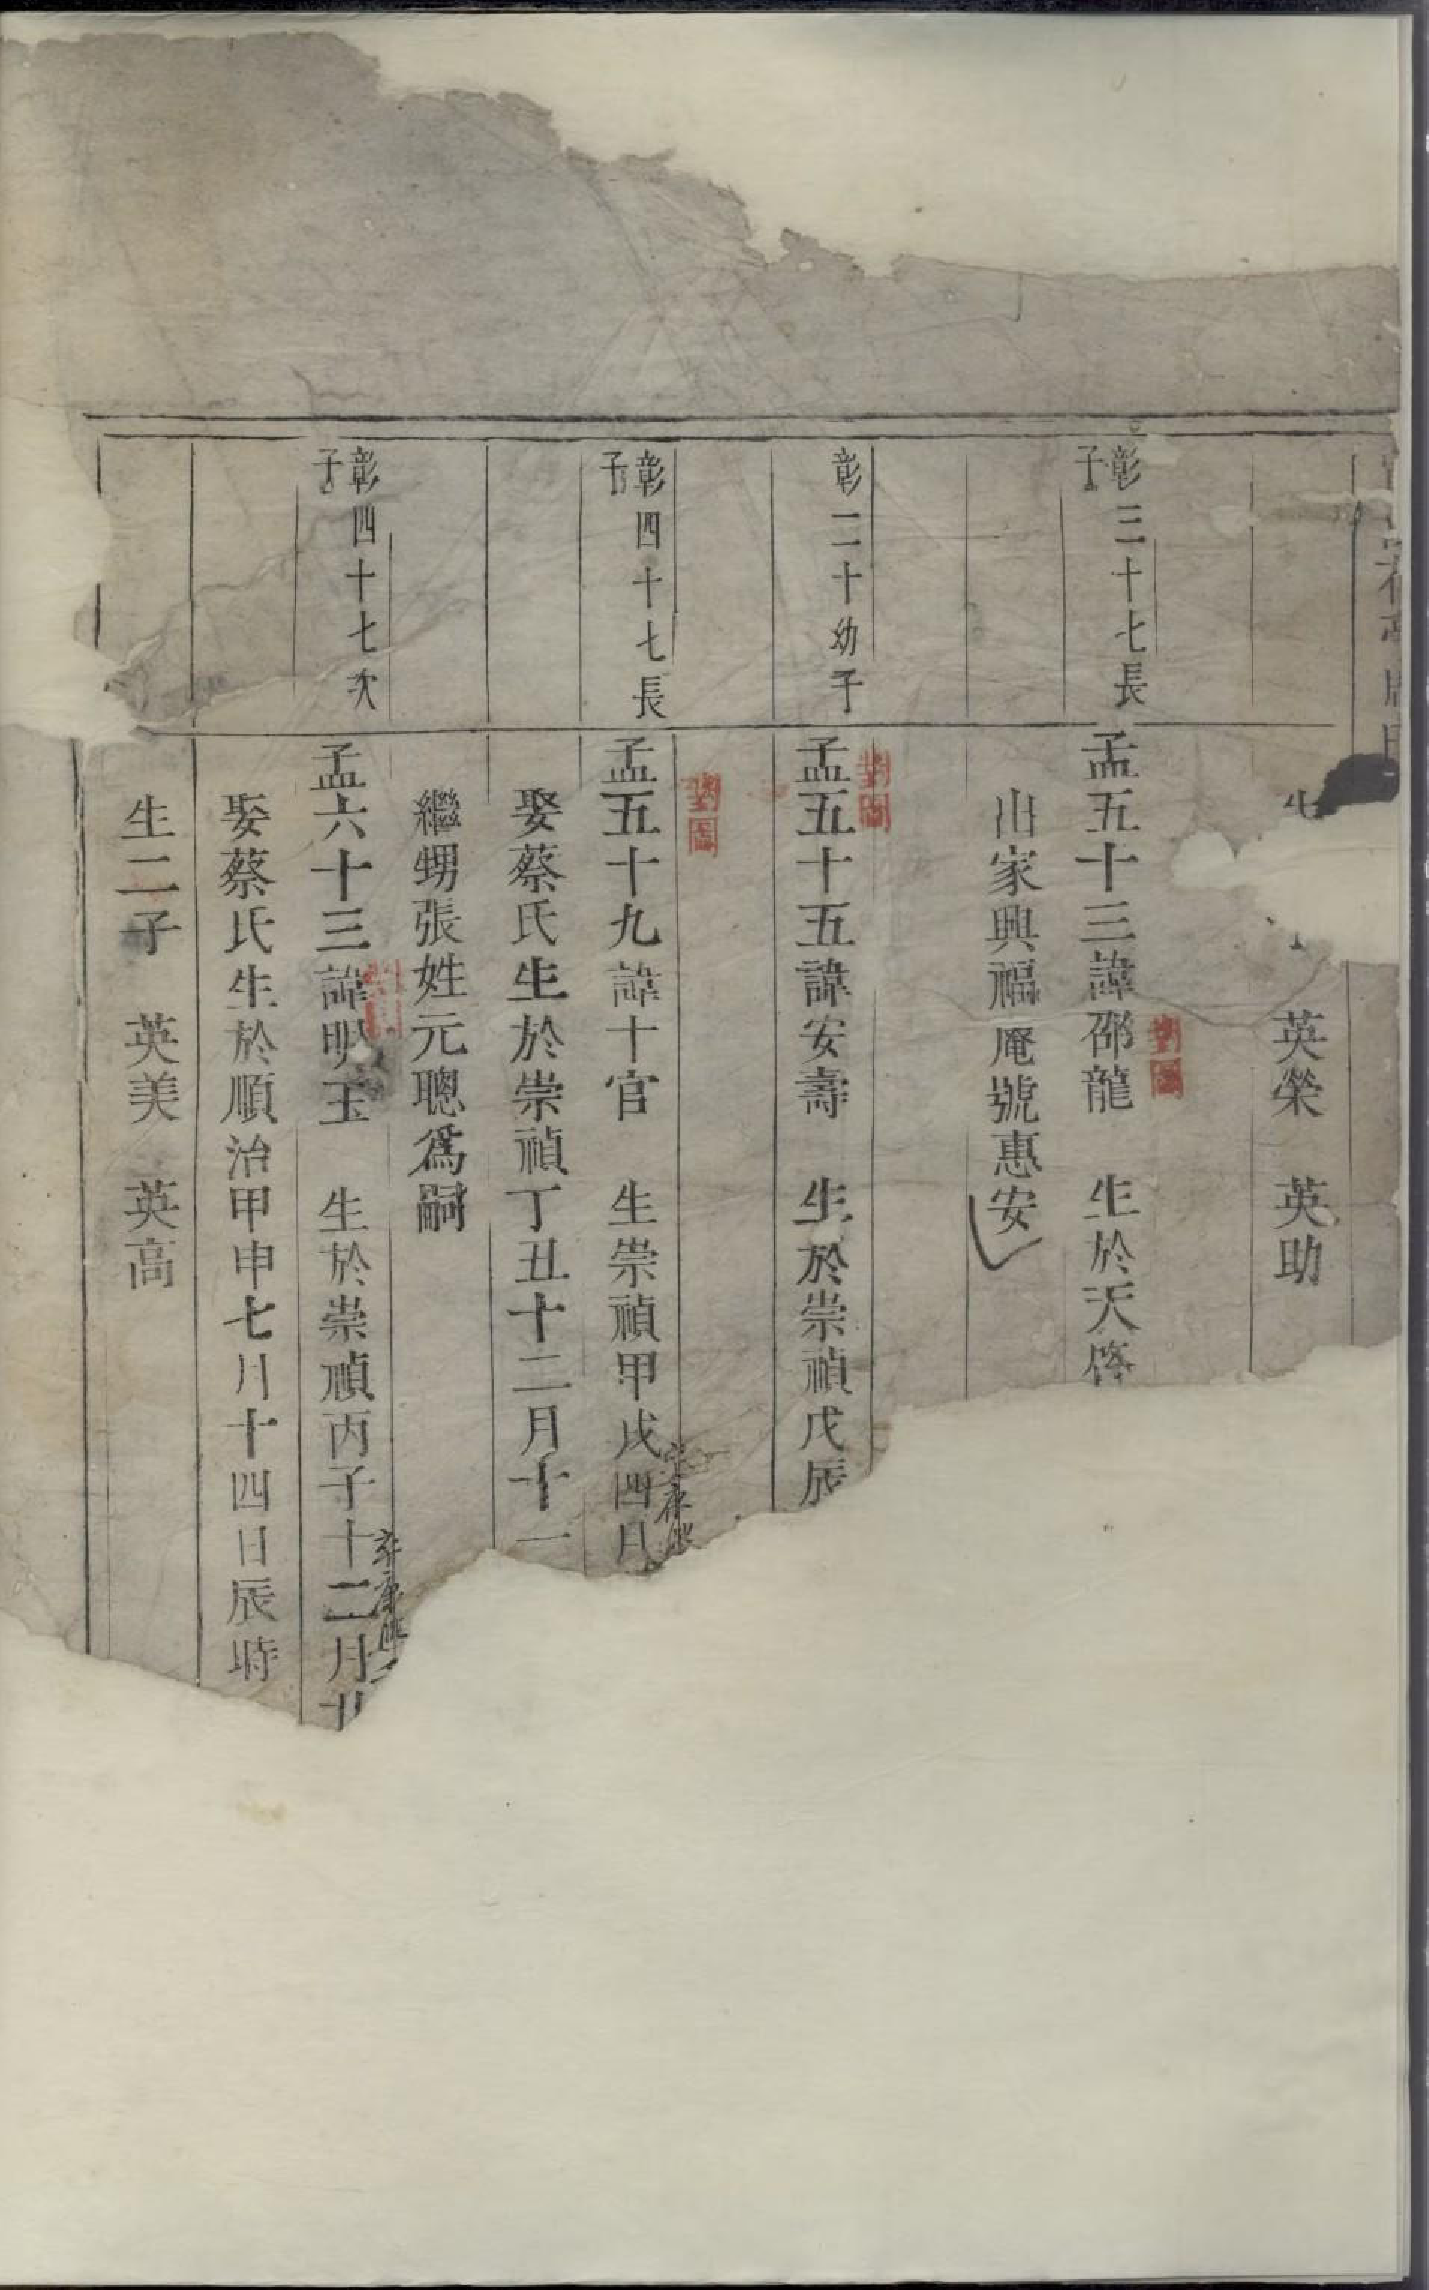 英榮　英助
彰三十七長子
孟五十三諱邵龍　生於天啓
出家興福庵號惠安
彰二十幼子
孟五十五諱安壽　生於崇禎戊辰
彰四十七長子
孟五十九諱十官　生崇禎甲戌四月
娶蔡氏生於崇禎丁丑十二月十一
繼甥張姓元聰爲嗣
彰四十七次子
孟六十三諱明玉　生於崇禎丙子十二月廿
娶蔡氏生於順治甲申七月十四日辰時
生二子　英美　英高